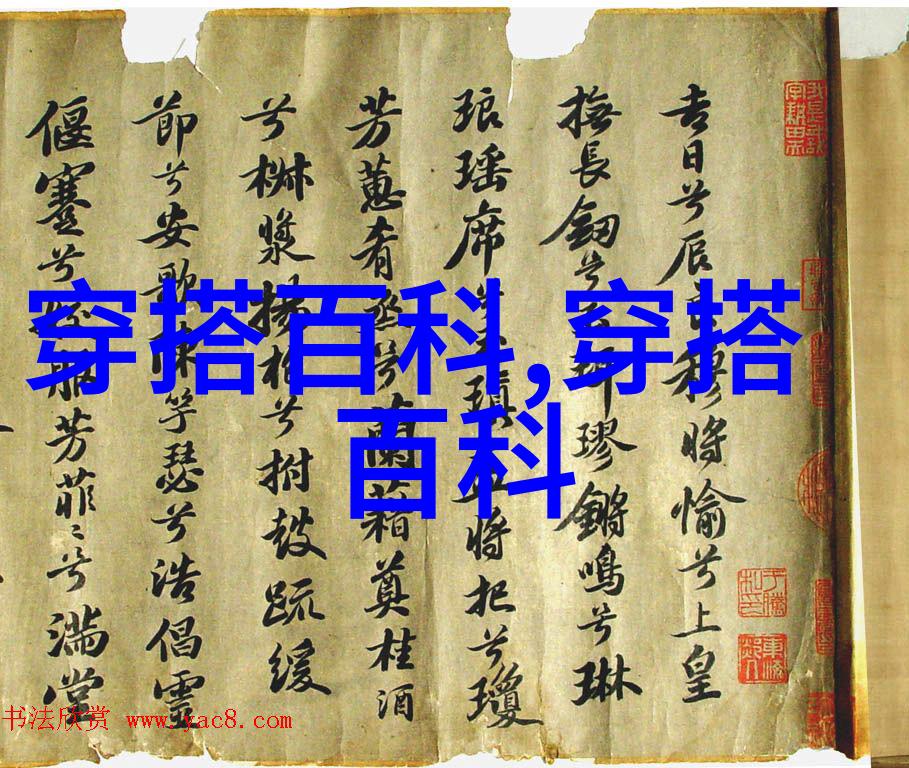 吉日兮辰良穆將愉兮上皇
撫長劒兮珥璆鏘鳴兮琳
琅瑶席瑱將把兮瓊
芳蕙肴蒸兮蘭藉奠桂酒
兮椒漿揚枹兮拊鼓疏緩
節兮安歌陳竽瑟兮浩倡靈
偃蹇兮姣服芳菲〻兮滿堂
穿搭百科,穿搭
百科
书法欣赏 www.yac8.com